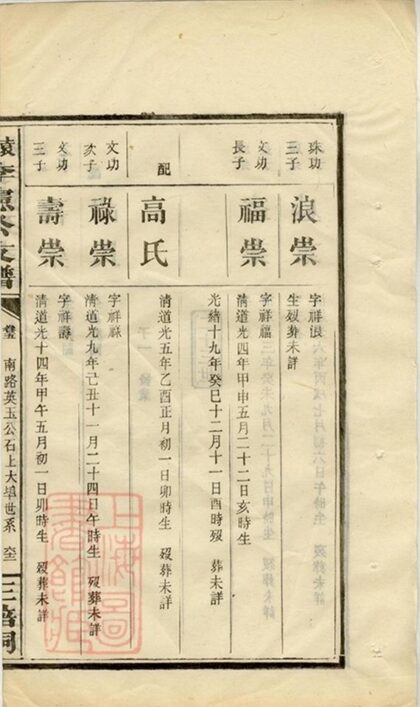 珠功
三子
浪崇
字祥浪
生歿葬未詳
文功
長子
福崇
字祥福
清道光四年甲申五月二十二日亥時生
光緒十九年癸巳十二月十一日酉時歿　葬未詳
配
高氏
清道光五年乙酉正月初一日卯時生　歿葬未詳
文功
次子
祿崇
字祥祿
清道光九年己丑十一月二十四日午時生　歿葬未詳
文功
三子
壽崇
字祥壽
清道光十四年甲午五月初一日卯時生　歿葬未詳
李 支譜
南路英玉公石上大埠世系
三 祠
上海圖
書館